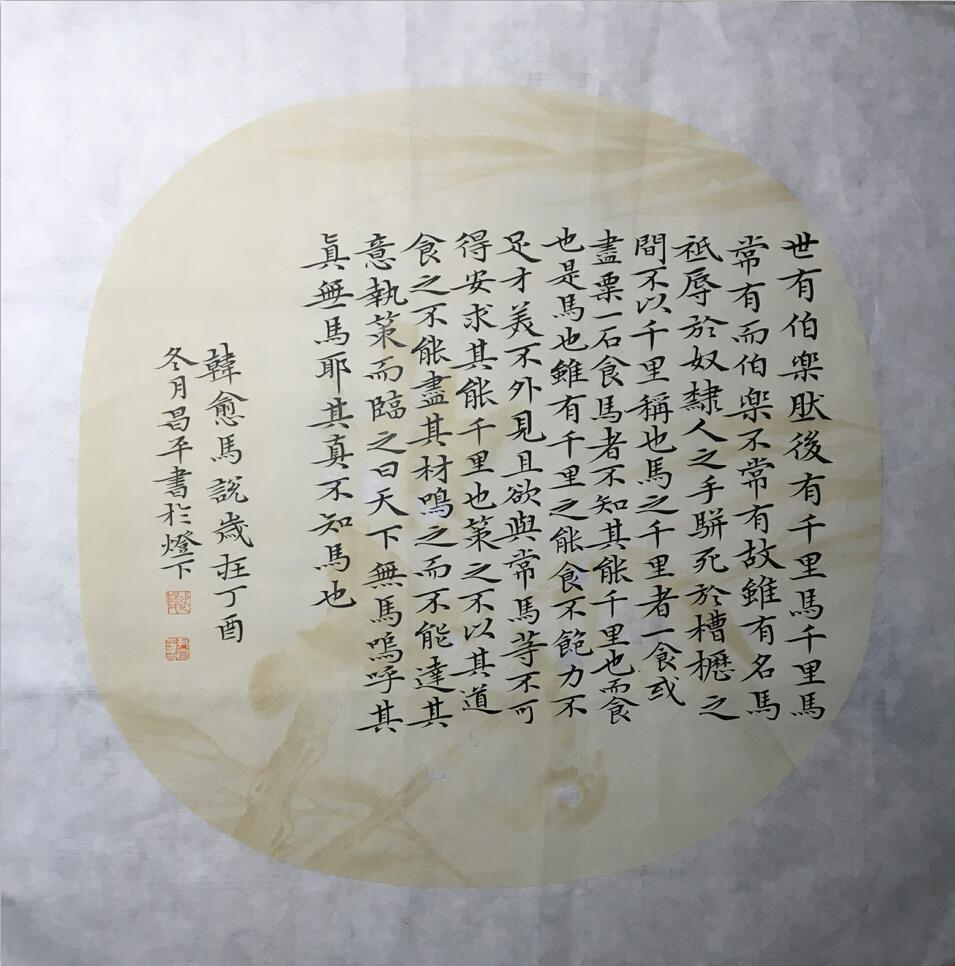 世有伯樂肰後有千里馬千里馬
常有而伯樂不常有故雖有名馬
祗辱於奴隸人之手駢死於槽櫪之
間不以千里稱也馬之千里者一食或
盡粟一石食馬者不知其能千里也而食
也是馬也雖有千里之能食不飽力不
足才美不外見且欲與常馬等不可
得安求其能千里也策之不以其道
食之不能盡其材鳴之而不能達其
意執策而臨之曰天下無馬嗚呼其
真無馬耶其真不知馬也
韓愈馬說歲在丁酉
冬月昌平書於燈下